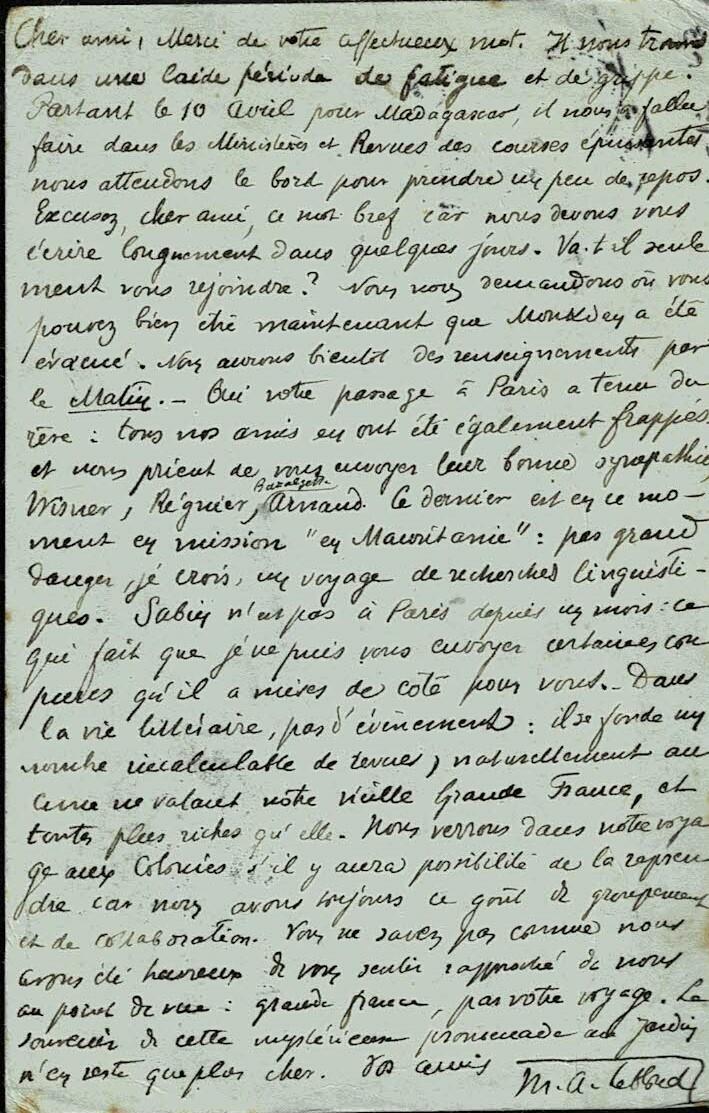 Cher ami, Merci de votre affectueux mot. Il nous trouve
dans une laide période de fatigue et de grippe.
Partant le 10 Avril pour Madagascar, il nous a fallu
faire dans les Ministères et Revues des courses épuisantes
nous attendons le bord pour prendre un peu de repos.
Excusez, cher ami, ce mot bref car nous devons vous
écrire longuement dans quelques jours. Va-t-il seule
ment vous rejoindre? Nous nous demandons où vous
pouvez bien être maintenant que Moukden a été
évacué. Nous aurons bientôt des renseignements par
le Matin. - Oui votre passage à Paris a tenu du
rêve : tous nos amis en ont été également frappés
et nous prient de vous envoyer leur bonne sympathie,
Wisner, Régnier, Bazalgette, Arnaud. Ce dernier est en ce mo-
ment en mission "en Mauritanie" : pas grand
danger, je crois, un voyage de recherches linguisti-
ques. Sabin n'est pas à Paris depuis un mois : ce
qui fait que je ne puis vous envoyer certaines cou
pures qu'il a mises de coté pour vous. - Dans
la vie littéraire, pas d'évènement : il se fonde un
nombre incalculable de revues, naturellement au
cune ne valant notre vieille Grande France, et
toutes plus riches qu'elle. Nous verrons dans notre voya
ge aux Colonies s'il y aura possibilité de la repren
dre car nous avons toujours ce goût de groupement
et de collaboration. Vous ne savez pas comme nous
avons été heureux de vous sentir rapproché de nous
au point de vue : grande france, par votre voyage. Le
souvenir de cette mystérieuse promenade au jardin
n'en reste que plus cher. Vos amis
M.A. Leblond